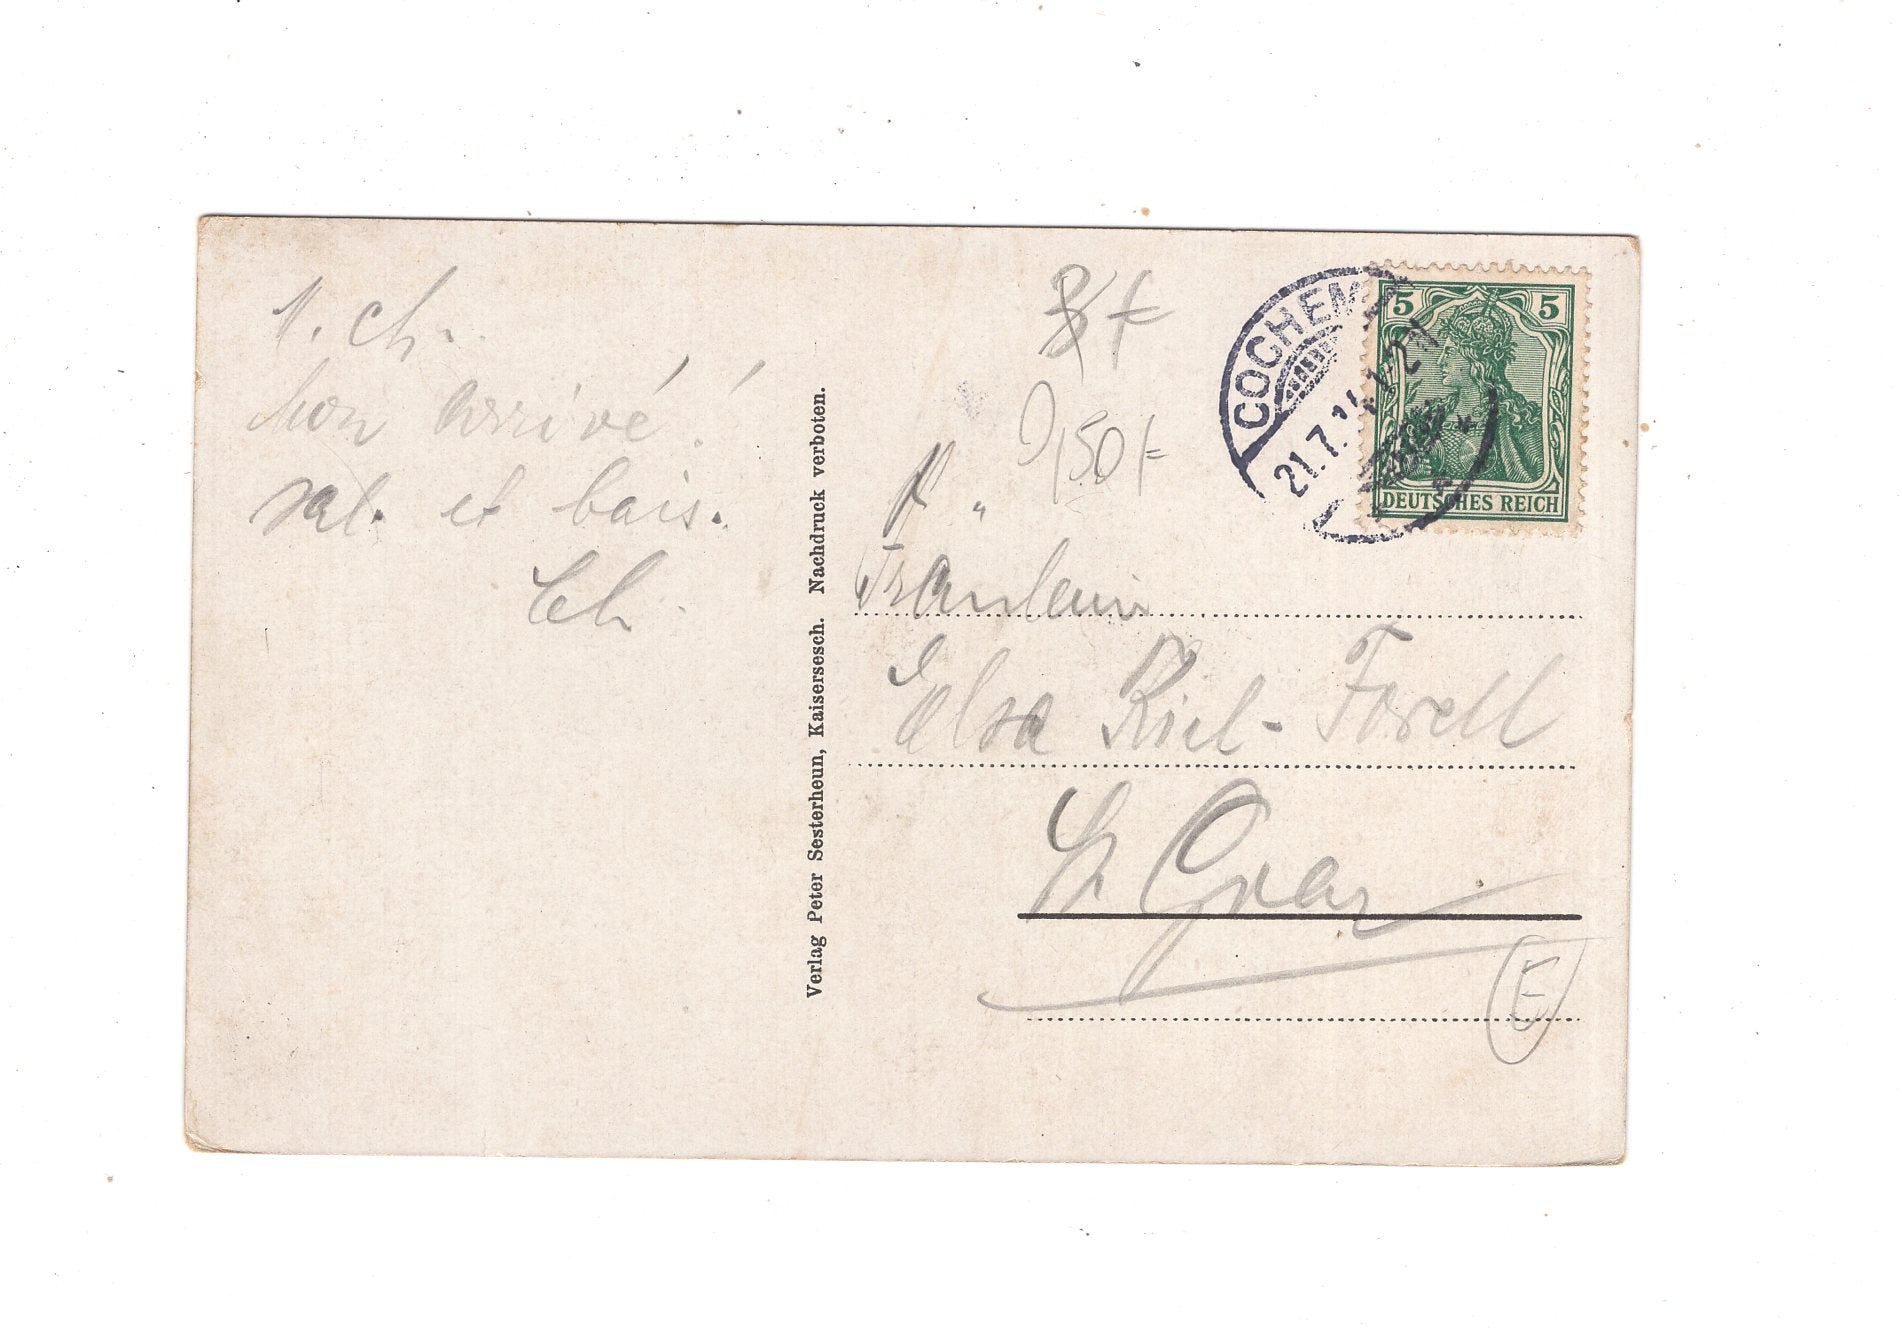 1. ch.
bon arrivé!
sal. et bais.
Ch.
Verlag Peter Sesterheun, Kaisersesch. Nachdruck verboten.
8,-
9,50
COCHEM
21.7.14.1-2N
5 5
DEUTSCHES REICH
Fräulein
Elsa Kiel-Forell
St Goar
E